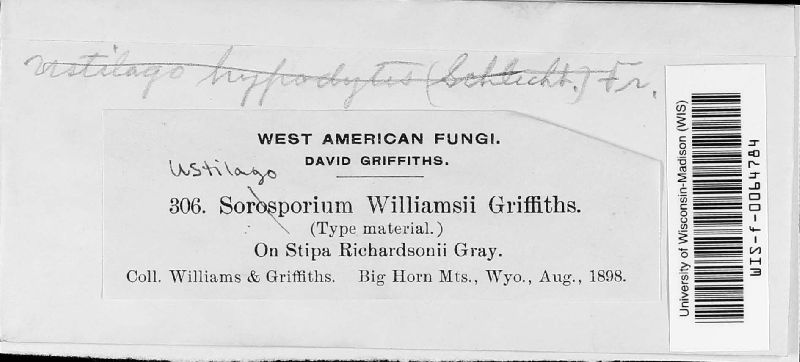 Ustilago hypodytes (Schlecht.) Fr.
WEST AMERICAN FUNGI.
DAVID GRIFFITHS.
Ustilago
306. Sorosporium Williamsii Griffiths.
(Type material.)
On Stipa Richardsonii Gray.
Coll. Williams & Griffiths. Big Horn Mts., Wyo., Aug., 1898.
University of Wisconsin-Madison (WIS)
WIS-f-0064784